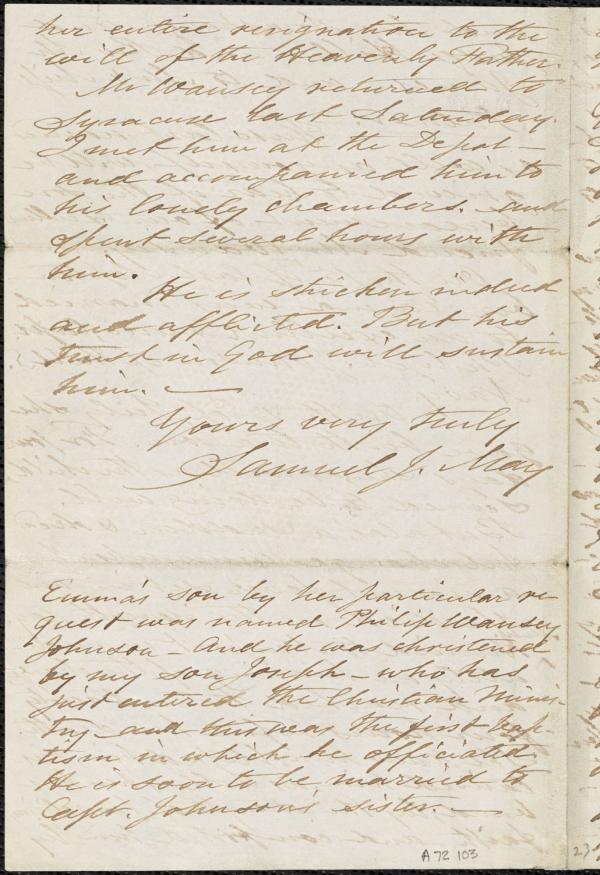 her entire resignation to the
will of the Heavenly Father.
Mr Wansey returned to
Syracuse last Saturday.
I met him at the Depot—
and accompanied him to
his lonely chambers. and
spent several hours with
him.
He is stricken indeed
and afflicted. But his
trust in God will sustain
him. —
Yours very truly
Samuel J. May
Emma's son by her particular re
quest was named Philip Wansey
Johnson — And he was christened
by my son Joseph — who has
just entered the Christian minis-
try — and this was the first bap-
tism in which he officiated
He is soon to be married to
Capt. Johnson's sister. —
A 72 103
23